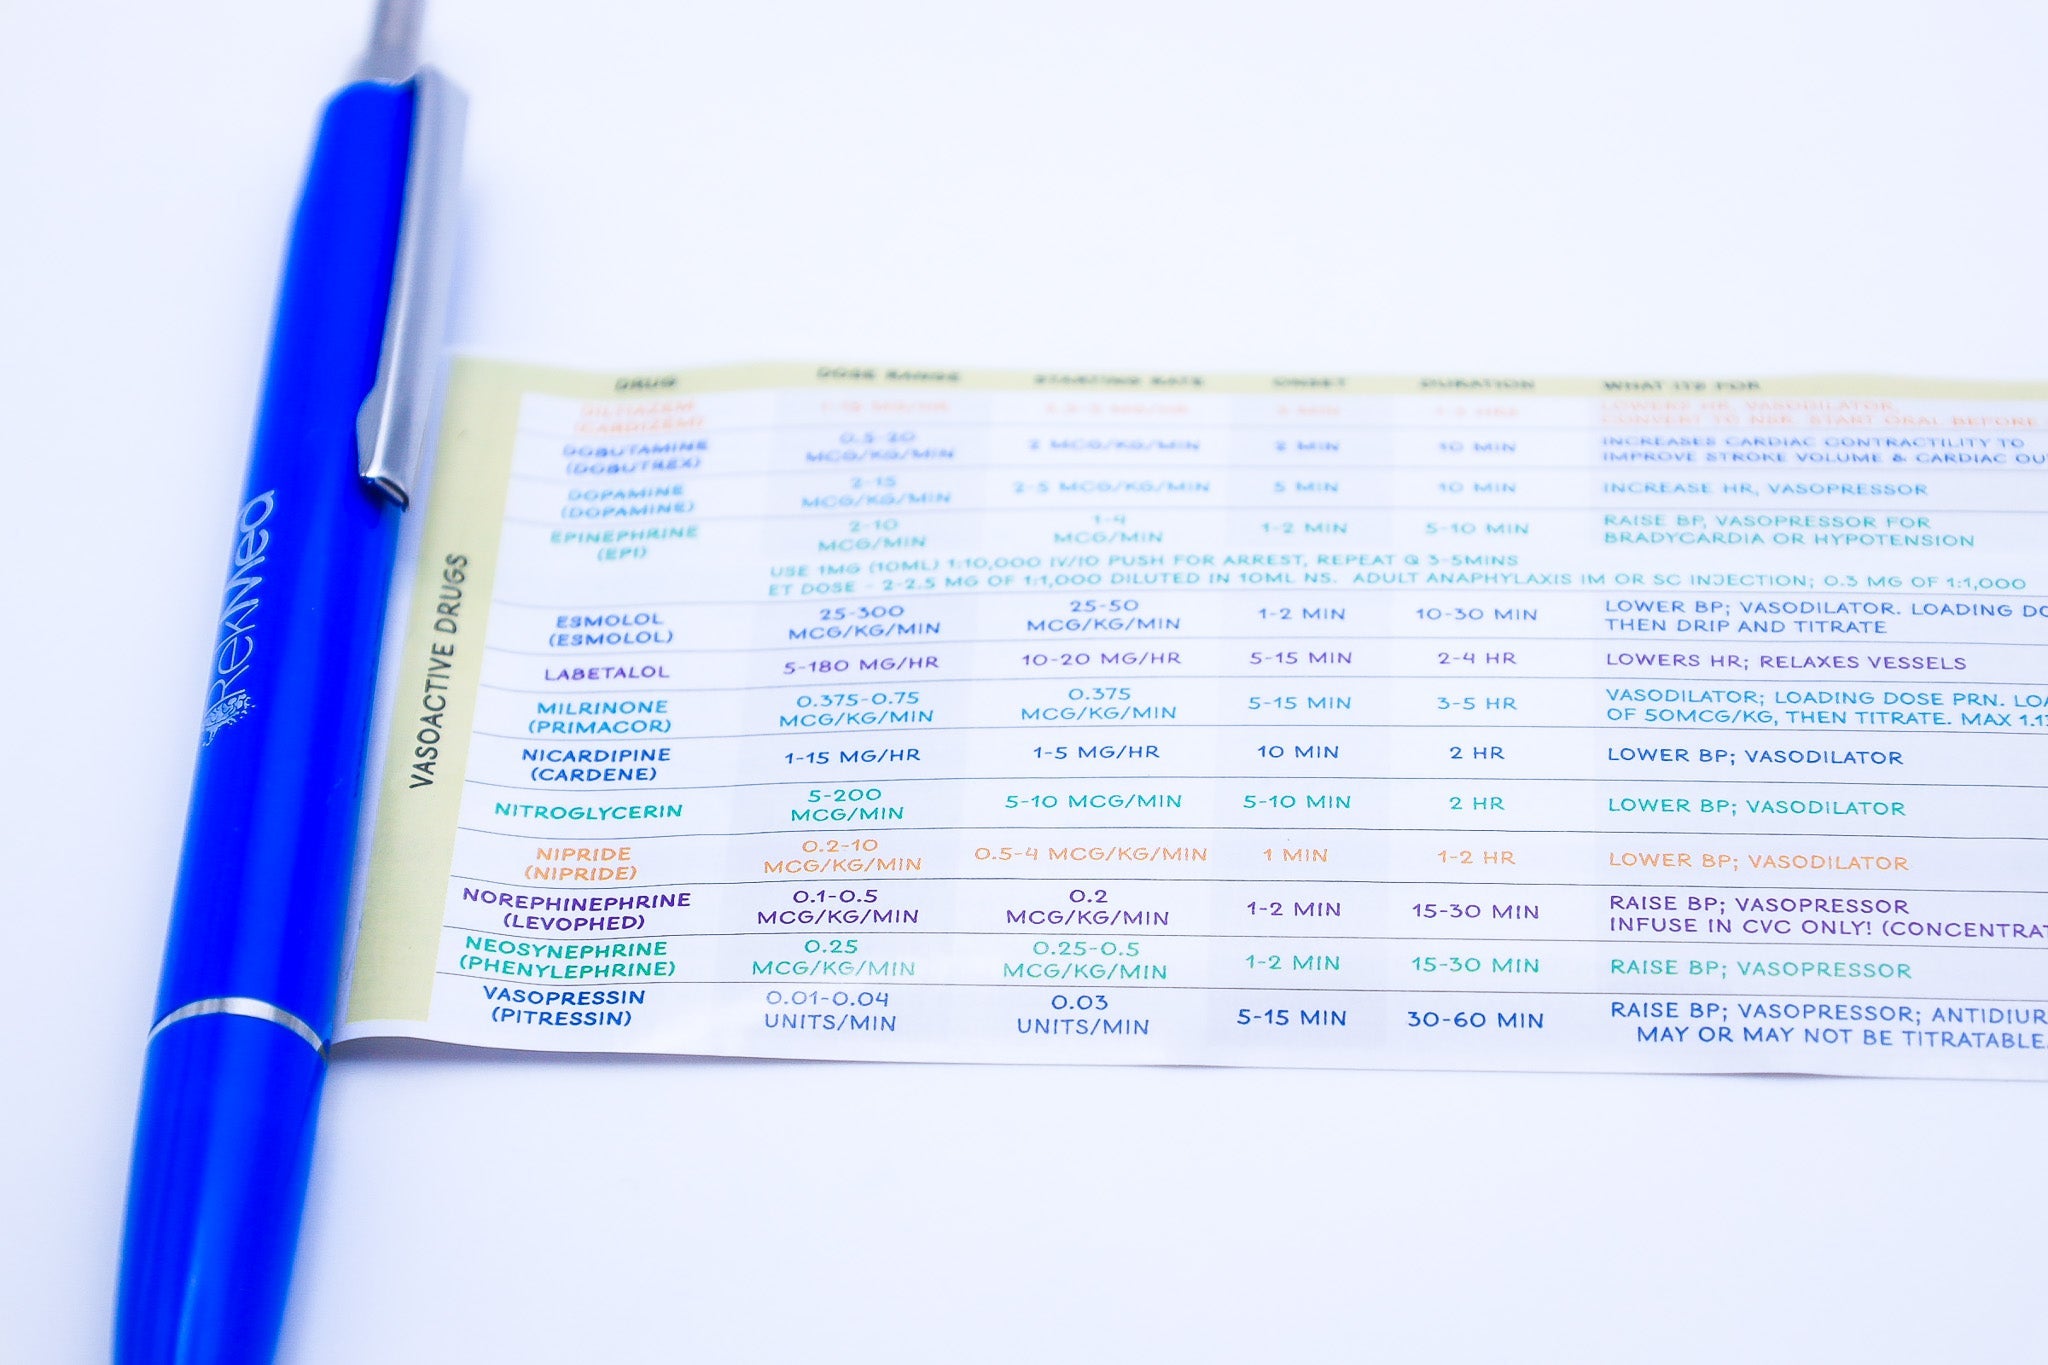 RekMed
VASOACTIVE DRUGS
DRUG DOSE RANGE STARTING RATE ONSET DURATION WHAT ITS FOR
DILTIAZEM LOWERS HR, VASODILATOR,
(CARDIZEM) CONVERT TO NSR. START ORAL BEFORE
DOBUTAMINE 0.5-20 2 MCG/KG/MIN 2 MIN 10 MIN INCREASES CARDIAC CONTRACTILITY TO
(DOBUTREX) MCG/KG/MIN IMPROVE STROKE VOLUME & CARDIAC
DOPAMINE 2-15 2-5 MCG/KG/MIN 5 MIN 10 MIN INCREASE HR, VASOPRESSOR
(DOPAMINE) MCG/KG/MIN
EPINEPHRINE 2-10 1-4 1-2 MIN 5-10 MIN RAISE BP, VASOPRESSOR FOR
(EPI) MCG/MIN MCG/MIN BRADYCARDIA OR HYPOTENSION
USE 1MG (10ML) 1:10,000 IV/IO PUSH FOR ARREST, REPEAT Q 3-5MINS
ET DOSE - 2-2.5 MG OF 1:1,000 DILUTED IN 10ML NS. ADULT ANAPHYLAXIS IM OR SC INJECTION; 0.3 MG OF 1:1,000
ESMOLOL 25-300 25-50 1-2 MIN 10-30 MIN LOWER BP; VASODILATOR. LOADING
(ESMOLOL) MCG/KG/MIN MCG/KG/MIN THEN DRIP AND TITRATE
LABETALOL 5-180 MG/HR 10-20 MG/HR 5-15 MIN 2-4 HR LOWERS HR; RELAXES VESSELS
MILRINONE 0.375-0.75 0.375 5-15 MIN 3-5 HR VASODILATOR; LOADING DOSE PRN.
(PRIMACOR) MCG/KG/MIN MCG/KG/MIN OF 50MCG/KG, THEN TITRATE. MAX
NICARDIPINE 1-15 MG/HR 1-5 MG/HR 10 MIN 2 HR LOWER BP; VASODILATOR
(CARDENE)
NITROGLYCERIN 5-200 5-10 MCG/MIN 5-10 MIN 2 HR LOWER BP; VASODILATOR
MCG/MIN
NIPRIDE 0.2-10 0.5-4 MCG/KG/MIN 1 MIN 1-2 HR LOWER BP; VASODILATOR
(NIPRIDE) MCG/KG/MIN
NOREPHINEPHRINE 0.1-0.5 0.2 1-2 MIN 15-30 MIN RAISE BP; VASOPRESSOR
(LEVOPHED) MCG/KG/MIN MCG/KG/MIN INFUSE IN CVC ONLY! (CONCENTRAT
NEOSYNEPHRINE 0.25 0.25-0.5 1-2 MIN 15-30 MIN RAISE BP; VASOPRESSOR
(PHENYLEPHRINE) MCG/KG/MIN MCG/KG/MIN
VASOPRESSIN 0.01-0.04 0.03 5-15 MIN 30-60 MIN RAISE BP; VASOPRESSOR; ANTIDIUR
(PITRESSIN) UNITS/MIN UNITS/MIN MAY OR MAY NOT BE TITRATABLE.